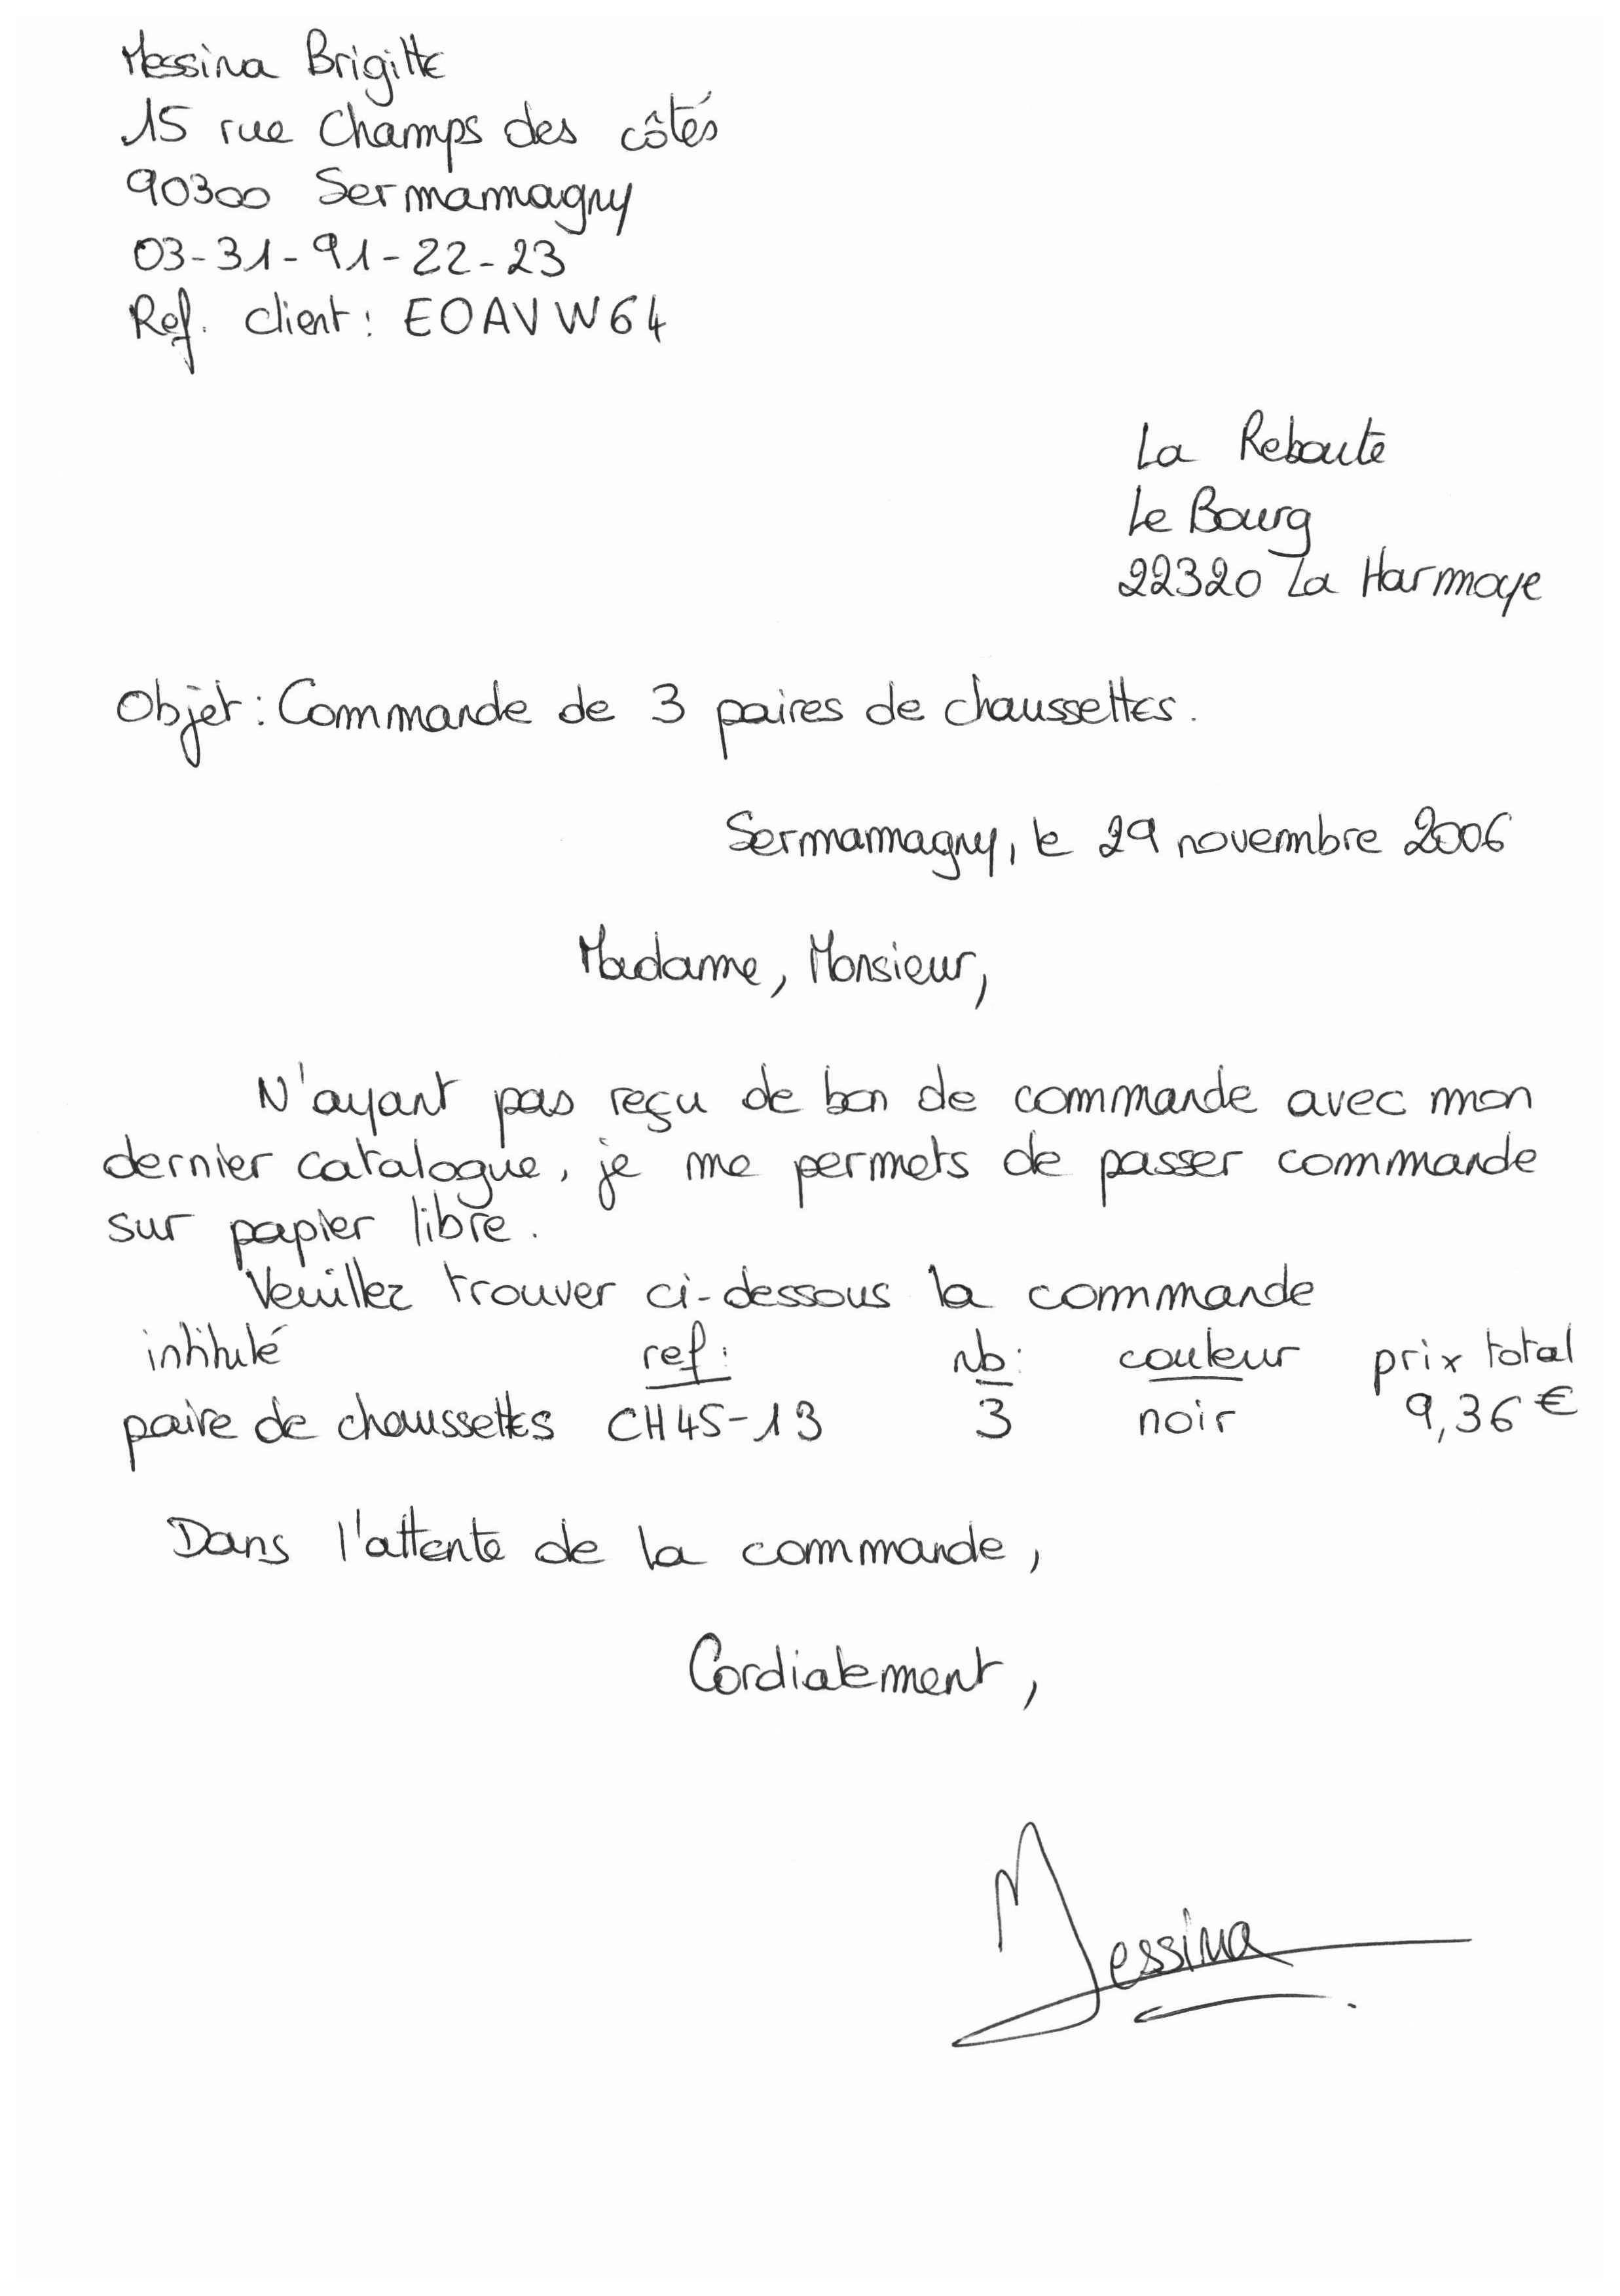 Messina Brigitte
15 rue Champs des côtés
90300 Sermamagny
03-31-91-22-23
Ref. client : EOAVW64
La Reboute
Le Bourg
22320 La Harmoye
Objet : Commande de 3 paires de chaussettes.
Sermamagny, le 29 novembre 2006
Madame, Monsieur,
N'ayant pas reçu de bon de commande avec mon
dernier catalogue, je me permets de passer commande
sur papier libre.
Veuillez trouver ci-dessous la commande
intitulé ref : nb : couleur prix total
paire de chaussettes CH45-13 3 noir 9,36 €
Dans l'attente de la commande,
Cordialement,
Messina